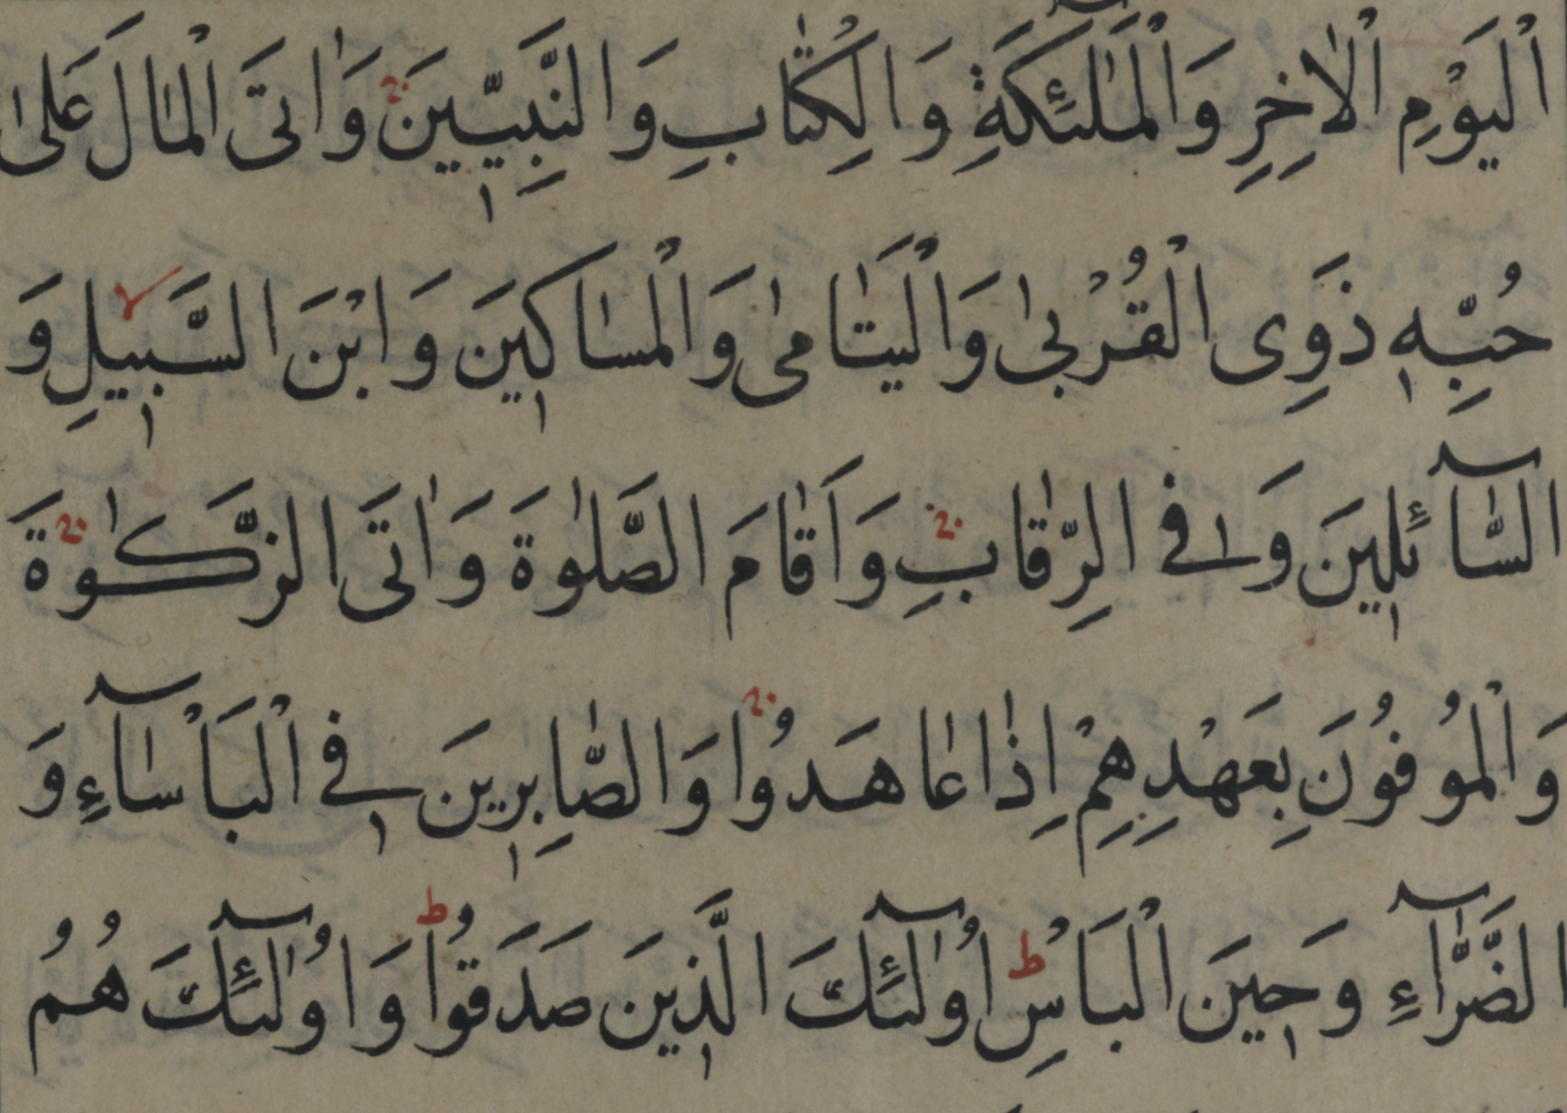 الْيَوْمِ الْاٰخِرِ وَالْمَلٰٓئِكَةِ وَالْكِتٰابِ وَالنَّبِيّٖينَ وَاٰتَى الْمٰالَ عَلىٰ
حُبِّهٖ ذَوِى الْقُرْبىٰ وَالْيَتٰامىٰ وَالْمَسٰاكٖينَ وَابْنَ السَّبٖيلِ وَ
السّٰٓائِلٖينَ وَفِى الرِّقٰابِ وَاَقٰامَ الصَّلٰوةَ وَاٰتَى الزَّكٰوةَ
وَالْمُوفُونَ بِعَهْدِهِمْ اِذٰا عٰاهَدُوا وَالصّٰابِرٖينَ فِى الْبَأْسٰٓاءِ وَ
الضَّرّٰٓاءِ وَحٖينَ الْبَأْسِ ط اُولٰٓئِكَ الَّذٖينَ صَدَقُوا ط وَاُولٰٓئِكَ هُمُ